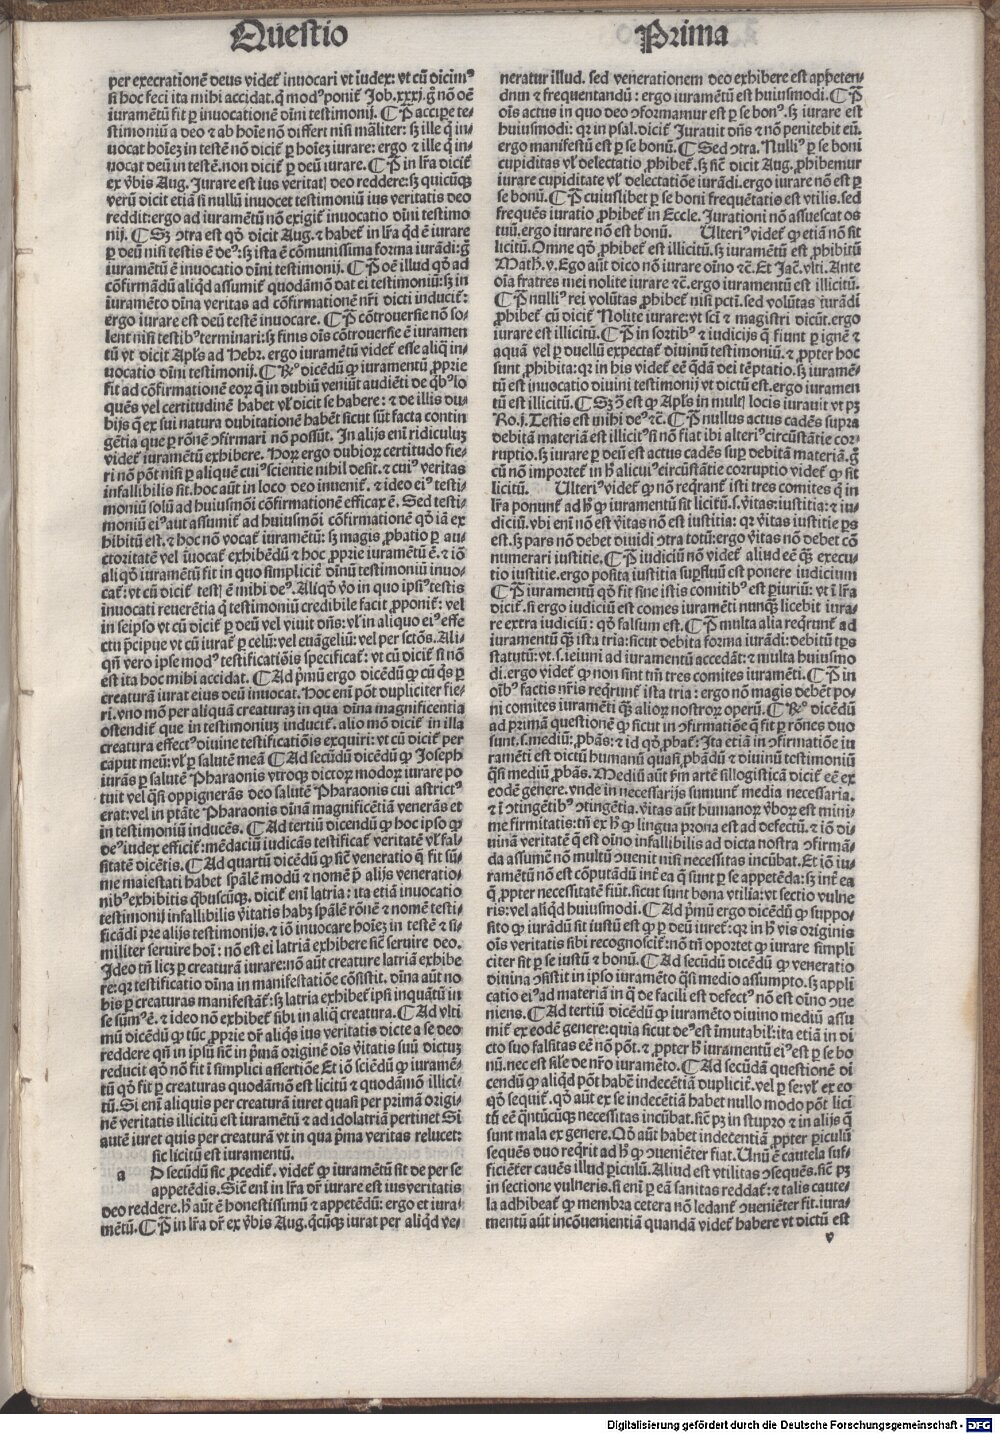 Questio
Prima
per execrationē deus videt᷑ inuocari vt iudex: vt cū dicimꝰ
si hoc feci ita mihi accidat. q̄ modꝰ ponit᷑ Job.xxxj. g̊ nō oē
iuramētū fit ꝑ inuocationē diuini testimonij. ¶ P̄ accipe te-
stimoniū a deo ⁊ ab hoīe nō differt nisi māliter: sꝫ ille q̄ in-
uocat hoīeꝫ in testē nō dicit᷑ ꝑ hoīeꝫ iurare: ergo ⁊ ille q̄ in-
uocat deū in testē. non dicit᷑ ꝑ deū iurare. ¶ P̄ in lr̄a dicit᷑
ex v̄bis Aug. Jurare est ius veritatꝭ deo reddere: sꝫ quicūqꝫ
verū dicit etiā si nullū inuocet testimoniū ius veritatis deo
reddit: ergo ad iuramētū nō exigit᷑ inuocatio dīni testimo
nij. ¶ Sꝫ ꝯtra est qd̄ dicit Aug. ⁊ habet᷑ in lr̄a qd̄ ē iurare
ꝑ deū nisi testis ē deꝰ: sꝫ ista ē cōmunissima forma iurādi: g̊
iuramētū ē inuocatio dīni testimonij. ¶ P̄ oē illud qd̄ ad
cōfirmādū aliqd̄ assumit᷑ quodāmō dat ei testimoniū: sꝫ in
iuramēto dīna veritas ad cōfirmationē nr̄i dicti inducit᷑:
ergo iurare est deū testē inuocare. ¶ P̄ cōtrouersie nō so-
lent nisi testibꝰ terminari: sꝫ finis oīs cōtrouersie ē iuramen
tū vt dicit Apl̄s ad Hebr. ergo iuramētū videt᷑ esse aliq̄ in-
uocatio dīni testimonij. ¶ Rꝰ dicēdū ꝙ iuramentū ꝓprie
fit ad cōfirmationē eoꝝ q̄ in dubiū veniūt audiēti de qͥbꝰ lo
quēs vel certitudinē habet vl̓ dicit se habere: ⁊ de illis du-
bijs q̄ ex sui natura dubitationē habēt sicut sūt facta contin
gētia que ꝑ rōnē ꝯfirmari nō possūt. In alijs em̄ ridiculuꝫ
videt᷑ iuramētū exhibere. Hoꝝ ergo dubioꝝ certitudo fie-
ri nō pōt nisi ꝑ aliquē cuiꝰ scientie nihil desit. ⁊ cuiꝰ veritas
infallibilis sit. hoc aūt in loco deo inuenit᷑. ⁊ ideo eiꝰ testi-
moniū solū ad huiusmōi cōfirmationē efficax ē. Sed testi-
moniū eiꝰ aut assumit᷑ ad huiusmōi cōfirmationē qd̄ iā ex
hibitū est. ⁊ hoc nō vocat᷑ iuramētū: sꝫ magis ꝓbatio ꝑ au-
ctoritatē vel īuocat᷑ exhibēdū ⁊ hoc ꝓprie iuramētū ē. ⁊ iō
ali qd̄ iuramētū fit in quo simplicit᷑ dīnū testimoniū inuo-
cat᷑: vt cū dicit᷑ testꝭ ē mihi deꝰ. Aliqd̄ v̄o in quo ipsiꝰ testis
inuocati reuerētia q̄ testimoniū credibile facit ꝓponit᷑: vel
in seipso vt cū dicit᷑ ꝑ deū vel viuit dn̄s: vl̓ in aliquo eiꝰ effe
ctu p̄cipue vt cū iurat᷑ ꝑ celū: vel euāgeliū: vel per sctōs. Ali-
qn̄ vero ipse modꝰ testificatiōis specificat᷑: vt cū dicit᷑ si nō
est ita hoc mihi accidat. ¶ Ad p̄mū ergo dicēdū ꝙ cū qͥs ꝑ
creaturā iurat eius deū inuocat. Hoc em̄ pōt dupliciter fie-
ri. vno mō per aliquā creaturaꝫ in qua dīna magnificentia
ostendit᷑ que in testimoniuꝫ inducit᷑. alio mō dicit᷑ in illa
creatura effectꝰ diuine testificatiōis exquiri: vt cū dicit᷑ per
caput meū: vl̓ ꝑ salutē meā ¶ Ad secūdū dicēdū ꝙ Joseph
iurās ꝑ salutē Pharaonis vtroqꝫ dictoꝝ modoꝝ iurare po
tuit vel qͣsi oppignerās deo salutē Pharaonis cui astrictꝰ
erat: vel in ptāte Pharaonis dīnā magnificētiā venerās et
in testimoniū inducēs. ¶ Ad tertiū dicendū ꝙ hoc ipso ꝙ
deꝰ iudex efficit᷑: mēdaciū iudicās testificat᷑ veritatē vl̓ fal-
sitatē dicētis. ¶ Ad quartū dicēdū ꝙ sic̄ veneratio q̄ fit sū-
me maiestati habet spālē modū ⁊ nomē p̄ alijs veneratio-
nibꝰ exhibitis qͥbuscūqꝫ. dicit᷑ em̄ latria: ita etiā inuocatio
testimonij infallibilis v̄itatis habꝫ spālē rōnē ⁊ nomē testi-
ficādi pre alijs testimonijs. ⁊ iō inuocare hoīeꝫ in testē ⁊ si-
militer seruire hoī: nō est ei latriā exhibere sic̄ seruire deo.
Ideo tn̄ licꝫ ꝑ creaturā iurare: nō aūt creature latriā exhibe
re: qꝛ testificatio dīna in manifestatiōe cōsistit. dīna aūt no
bis ꝑ creaturas manifestāt᷑: sꝫ latria exhibet᷑ ipsi inquātū in
se sūmꝰ ē. ⁊ ideo nō exhibet᷑ sibi in aliq̄ creatura. ¶ Ad vlti
mū dicēdū ꝙ tūc ꝓprie dr̄ aliqͥs ius veritatis dicte a se deo
reddere qn̄ in ipsū sic̄ in p̄mā originē oīs v̄itatis suū dictuꝫ
reducit qd̄ nō fit ī simplici assertiōe Et iō sciēdū ꝙ iuramē-
tū qd̄ fit ꝑ creaturas quodāmō est licitū ⁊ quodāmō illici-
tū. Si em̄ aliquis per creaturā iuret quasi per primā origi-
nē veritatis illicitū est iuramētū ⁊ ad idolatriā pertinet Si
autē iuret quis per creaturā vt in qua p̄ma veritas relucet:
sic licitū est iuramentū.
a D secūdū sic ꝓcedit᷑. videt᷑ ꝙ iuramētū sit de per se
appetēdis. Sic̄ em̄ in lr̄a dr̄ iurare est ius veritatis
deo reddere. h̄ aūt ē honestissimū ⁊ appetēdū: ergo et iura-
mētū. ¶ P̄ in lr̄a dr̄ ex v̄bis Aug. qͥcūqꝫ iurat per aliqd̄ ve-
neratur illud. sed venerationem deo exhibere est appeten-
dum ⁊ frequentandū: ergo iuramētū est huiusmodi. ¶ P̄
oīs actus in quo deo ꝯformamur est ꝑ se bonꝰ. sꝫ iurare est
huiusmodi: qꝛ in psal. dicit᷑ Jurauit dn̄s ⁊ nō penitebit eū.
ergo manifestū est ꝑ se bonū. ¶ Sed ꝯtra. Nulliꝰ ꝑ se boni
cupiditas vl̓ delectatio ꝓhibet᷑. sꝫ sic̄ dicit Aug. ꝓhibemur
iurare cupiditate vl̓ delectatiōe iurādi. ergo iurare nō est ꝑ
se bonū. ¶ P̄ cuiuslibet ꝑ se boni frequētatis est vtilis. sed
frequēs iuratio ꝓhibet᷑ in Eccle. Jurationi nō assuescat os
tuū. ergo iurare nō est bonū. Ulteriꝰ videt᷑ ꝙ etiā nō sit
licitū. Omne qd̄ ꝓhibet᷑ est illicitū. sꝫ iuramētū est ꝓhibitū
Math. v. Ego aūt dico nō iurare oīno ⁊c̄. Et Jac̄. vlti. Ante
oīa fratres mei nolite iurare ⁊c̄. ergo iuramentū est illicitū.
¶ P̄ nulliꝰ rei volūtas ꝓhibet᷑ nisi pcti. sed volūtas iurādi
ꝓhibet᷑ cū dicit᷑ Nolite iurare: vt sci ⁊ magistri dicūt. ergo
iurare est illicitū. ¶ P̄ in sortibꝰ ⁊ iudicijs q̄ fiunt ꝑ ignē ⁊
aquā vel ꝑ duellū expectat᷑ diuinū testimoniū. ⁊ ꝓpter hoc
sunt ꝓhibita: qꝛ in his videt᷑ eē qͣdā dei tēptatio. sꝫ iuramē-
tū est inuocatio diuini testimonij vt dictū est. ergo iuramen
tū est illicitū. ¶ Sꝫ ꝯ̄ est ꝙ Apl̄s in multꝭ locis iurauit vt pꝫ
Ro.j. Testis est mihi deꝰ ⁊c̄. ¶ P̄ nullus actus cadēs supra
debitā materiā est illicitꝰ si nō fiat ibi alteriꝰ circūstātie cor-
ruptio. sꝫ iurare ꝑ deū est actus cadēs suꝑ debitā materiā. q̄
cū nō importet᷑ in h̄ alicuiꝰ circūstātie corruptio videt᷑ ꝙ sit
licitū. Ulteriꝰ videt᷑ ꝙ nō reqͥrant᷑ isti tres comites q̄ in
lr̄a ponunt᷑ ad h̄ ꝙ iuramentū sit licitū. s. v̄itas: iustitia: ⁊ iu-
diciū. vbi em̄ nō est v̄itas nō est iustitia: qꝛ v̄itas iustitie ꝑs
est. sꝫ pars nō debet diuidi ꝯtra totū: ergo v̄itas nō debet cō
numerari iustitie. ¶ P̄ iudiciū nō videt᷑ aliud eē qͣꝫ execu-
tio iustitie. ergo posita iustitia suꝑfluū est ponere iudicium
¶ P̄ iuramentū qd̄ fit sine istis comitibꝰ est periuriū: vt ī lr̄a
dicit᷑. si ergo iudiciū est comes iuramēti nunqͣꝫ licebit iura-
re extra iudiciū: qd̄ falsum est. ¶ P̄ multa alia reqͥrunt᷑ ad
iuramentū qͣꝫ ista tria: sicut debita forma iurādi: debitū tꝑs
statutū: vt. s. ieiuni ad iuramentū accedāt: ⁊ multa huiusmo
di. ergo videt᷑ ꝙ non sint tm̄ tres comites iuramēti. ¶ P̄ in
oībꝰ factis nr̄is reqͥrunt᷑ ista tria: ergo nō magis debēt po-
ni comites iuramēti qͣꝫ alioꝝ nostroꝝ operū. ¶ Rꝰ dicēdū
ad primā questionē ꝙ sicut in ꝯfirmatiōe q̄ fit ꝑ rōnes duo
sunt. s. mediū: ꝓbās: ⁊ id qd̄ ꝓbat᷑: Ita etiā in ꝯfirmatiōe iu
ramēti est dictū humanū quasi ꝓbādū ⁊ diuinū testimoniū
qͣsi mediū ꝓbās. Mediū aūt ẜm artē sillogisticā dicit᷑ eē ex
eodē genere. vnde in necessarijs sumunt᷑ media necessaria.
⁊ ī ꝯtingētibꝰ ꝯtingētia. v̄itas aūt humanoꝝ v̄boꝝ est mini-
me firmitatis: tn̄ ex h̄ ꝙ lingua prona est ad defectū. ⁊ iō di-
uinā veritatē q̄ est oīno infallibilis ad dicta nostra ꝯfirmā-
da assumē nō multū ꝯuenit nisi necessitas incūbat. Et iō iu-
ramētū nō est cōputādū int̄ ea q̄ sunt ꝑ se appetēda: sꝫ int̄ ea
q̄ ꝓpter necessitatē fiūt. sicut sunt bona vtilia: vt sectio vulne
ris: vel aliqd̄ huiusmodi. ¶ Ad p̄mū ergo dicēdū ꝙ suppo-
sito ꝙ iurādū sit iustū est ꝙ ꝑ deū iuret᷑: qꝛ in h̄ vis originis
oīs veritatis sibi recognoscit᷑: nō tn̄ oportet ꝙ iurare simpli
citer sit ꝑ se iustū ⁊ bonū. ¶ Ad secūdū dicēdū ꝙ veneratio
diuina ꝯsistit in ipso iuramēto qͣsi medio assumpto. sꝫ appli
catio eiꝰ ad materiā in q̄ de facili est defectꝰ nō est oīno ꝯue
niens. ¶ Ad tertiū dicēdū ꝙ iuramēto diuino mediū assu
mit᷑ ex eodē genere: quia sicut deꝰ est īmutabil̓: ita etiā in di
cto suo falsitas eē nō pōt. ⁊ ꝓpter h̄ iuramentū eiꝰ est ꝑ se bo
nū. nec est sil̓e de nr̄o iuramēto. ¶ Ad secūdā questionē di
cendū ꝙ aliqd̄ pōt habē indecētiā duplicit᷑. vel ꝑ se: vl̓ ex eo
qd̄ sequit᷑. qd̄ aūt ex se indecētiā habet nullo modo pōt lici
tū eē qͣntūcūqꝫ necessitas incūbat. sic̄ pꝫ in stupro ⁊ in alijs q̄
sunt mala ex genere. Qd̄ aūt habet indecentiā ꝓpter ꝑiculū
sequēs duo reqͥrit ad h̄ ꝙ ꝯueniēter fiat. Unū ē cautela suf-
ficiēter cauēs illud ꝑiculū. Aliud est vtilitas ꝯsequēs. sic̄ pꝫ
in sectione vulneris. si em̄ ꝑ eā sanitas reddat᷑: ⁊ talis caute-
la adhibeat᷑ ꝙ membra cetera nō ledant᷑ ꝯueniēter fit. iura-
mentū aūt incōuenientiā quandā videt᷑ habere vt dictū est
v
Digitalisierung gefördert durch die Deutsche Forschungsgemeinschaft - DFG